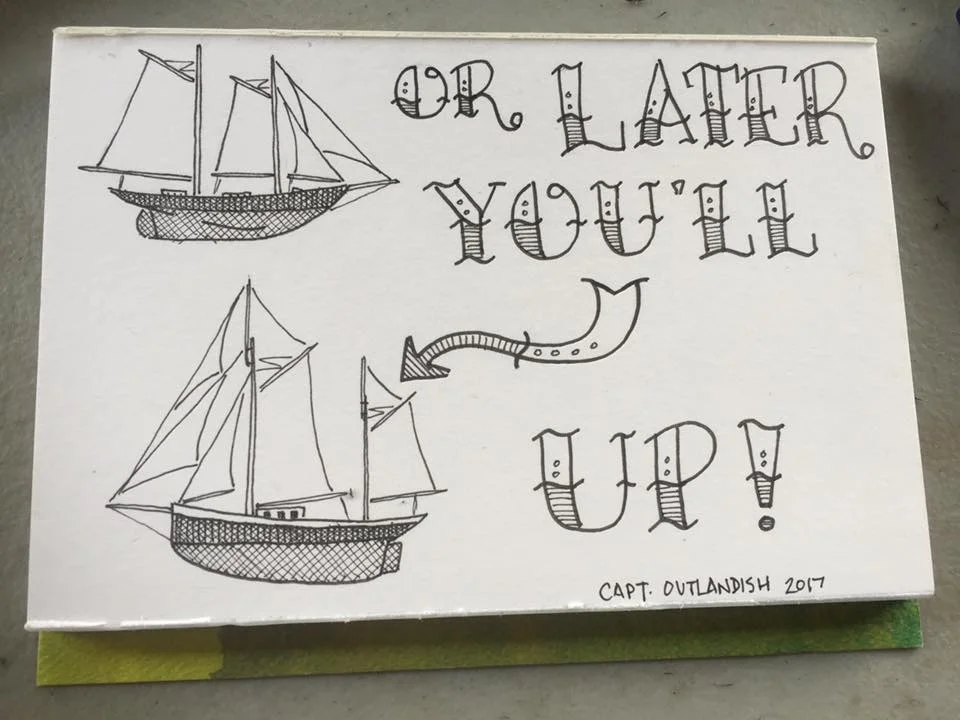 OR LATER
YOU'LL
UP!
CAPT. OUTLANDISH 2017